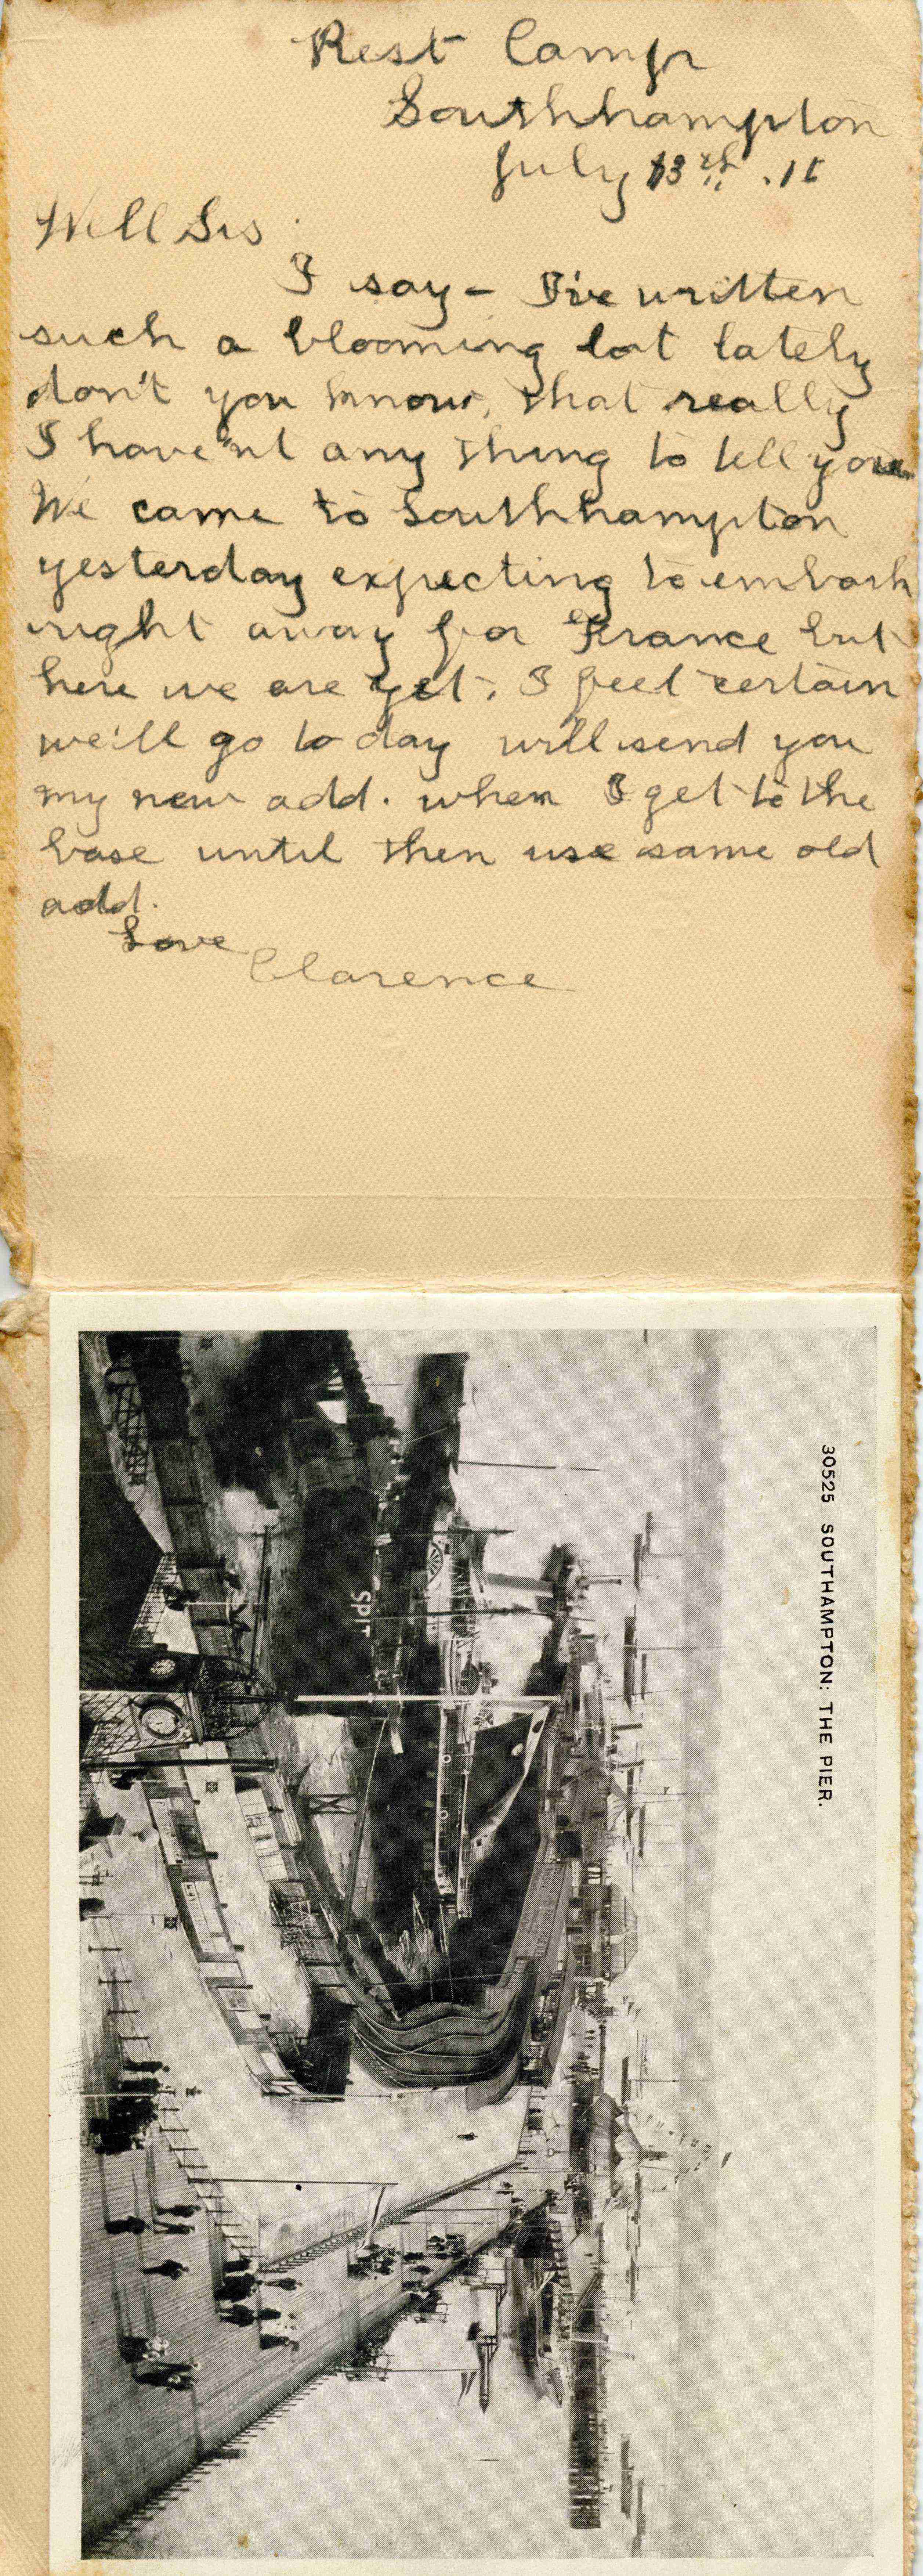 Rest Camp
Southhampton
July 13th .15
Well Sis
I say - I've written
such a blooming lot lately
don't you know, that really
I have'nt any thing to tell you
We came to Southhampton
yesterday expecting to embark
right away for France but
here we are yet. I feel certain
we'll go to day will send you
my new add. when I get to the
base until then use same old
add.
Love
Clarence
30525 SOUTHAMPTON: THE PIER.
SPIT